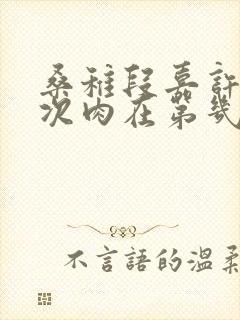 桑稚段嘉許
次肉在第幾
不言語的溫柔